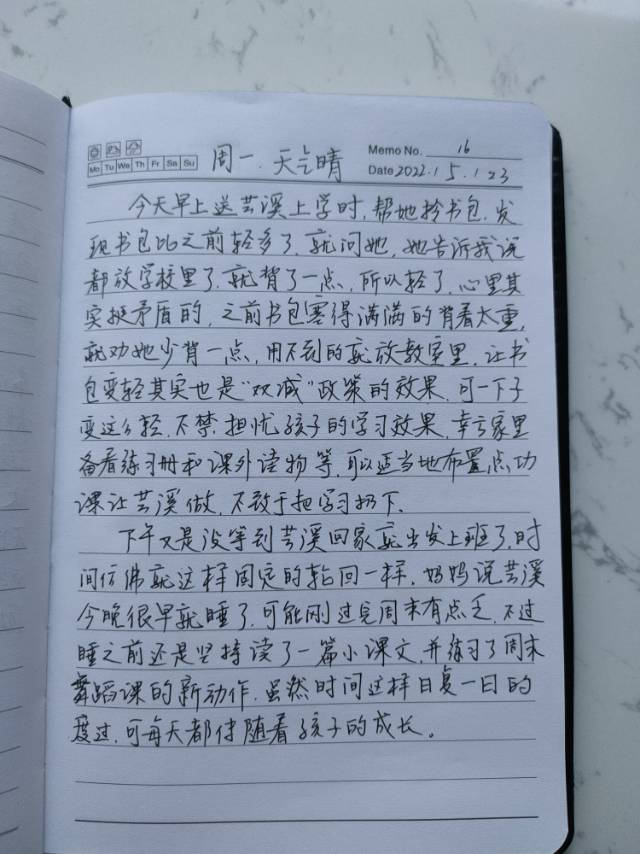 Mo Tu We Th Fr Sa Su
周一.天气晴
Memo No. 16
Date 2022.1 5.1 23
今天早上送芸溪上学时,帮她拎书包,发
现书包比之前轻多了,就问她,她告诉我说
都放学校里了,就背了一点,所以轻了,心里其
实挺矛盾的,之前书包塞得满满的背着太重,
就劝她少背一点,用不到的就放教室里,让书
包变轻其实也是“双减”政策的效果,可一下子
变这么轻,不禁担忧孩子的学习效果,幸亏家里
备着练习册和课外读物等,可以适当地布置点功
课让芸溪做,不致于把学习扔下.
下午又是没等到芸溪回家就出发上班了,时
间仿佛就这样固定的轮回一样,妈妈说芸溪
今晚很早就睡了,可能刚过完周末有点乏,不过
睡之前还是坚持读了一篇小课文,并练习了周末
舞蹈课的新动作,虽然时间这样日复一日的
度过,可每天都伴随着孩子的成长。